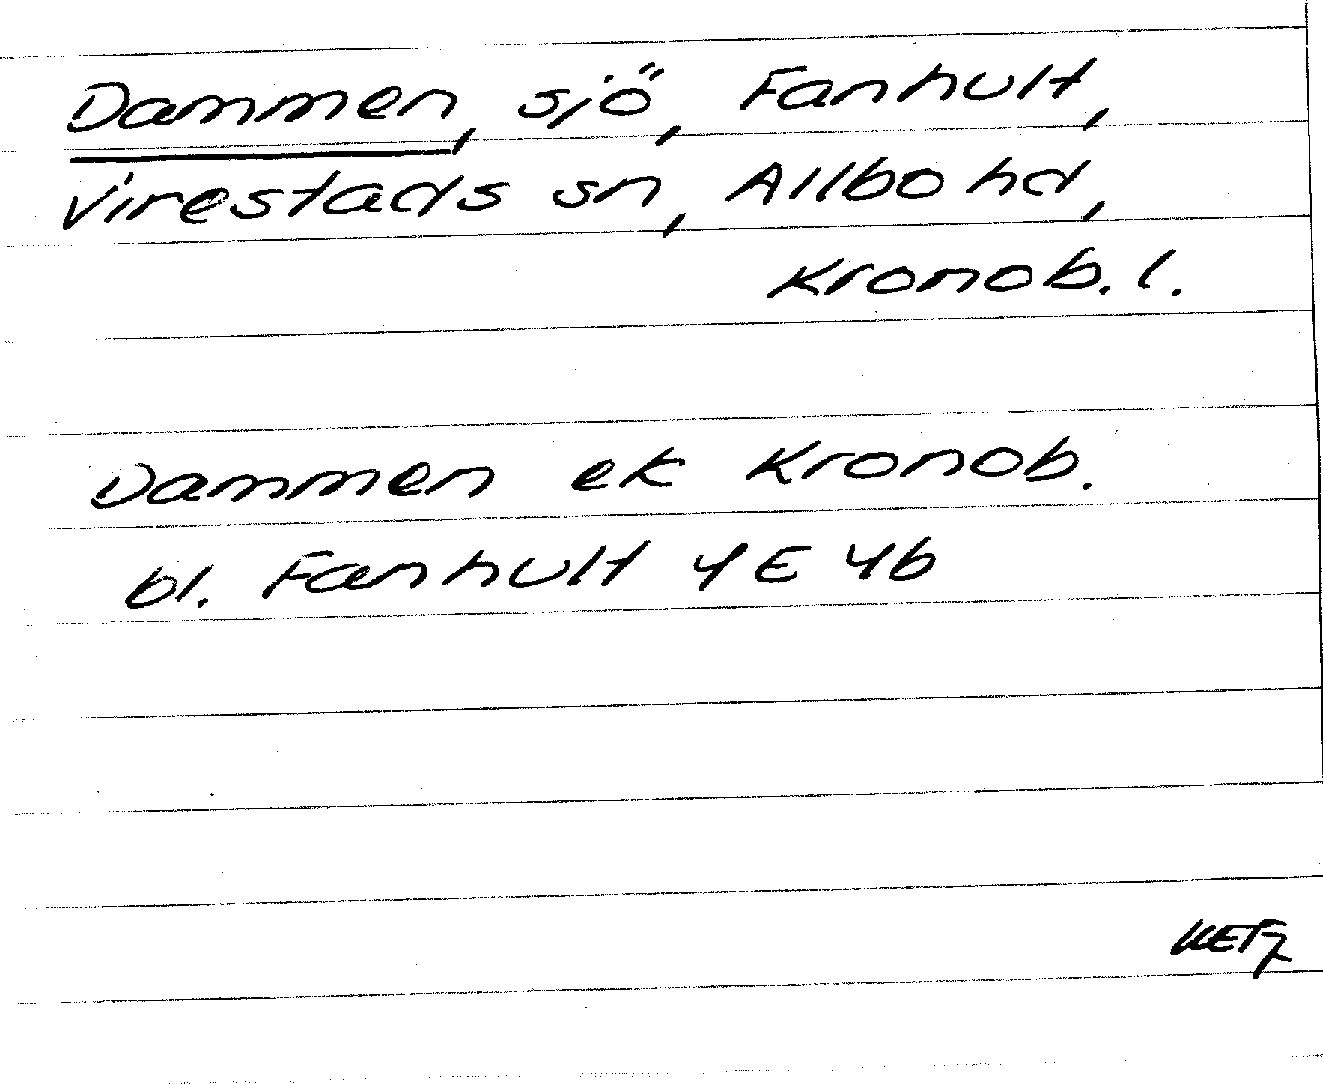 Dammen, sjö, Fanhult,
Virestads sn, Allbo hd,
Kronob. l.
Dammen ek Kronob.
bl. Fanhult 4E 4b